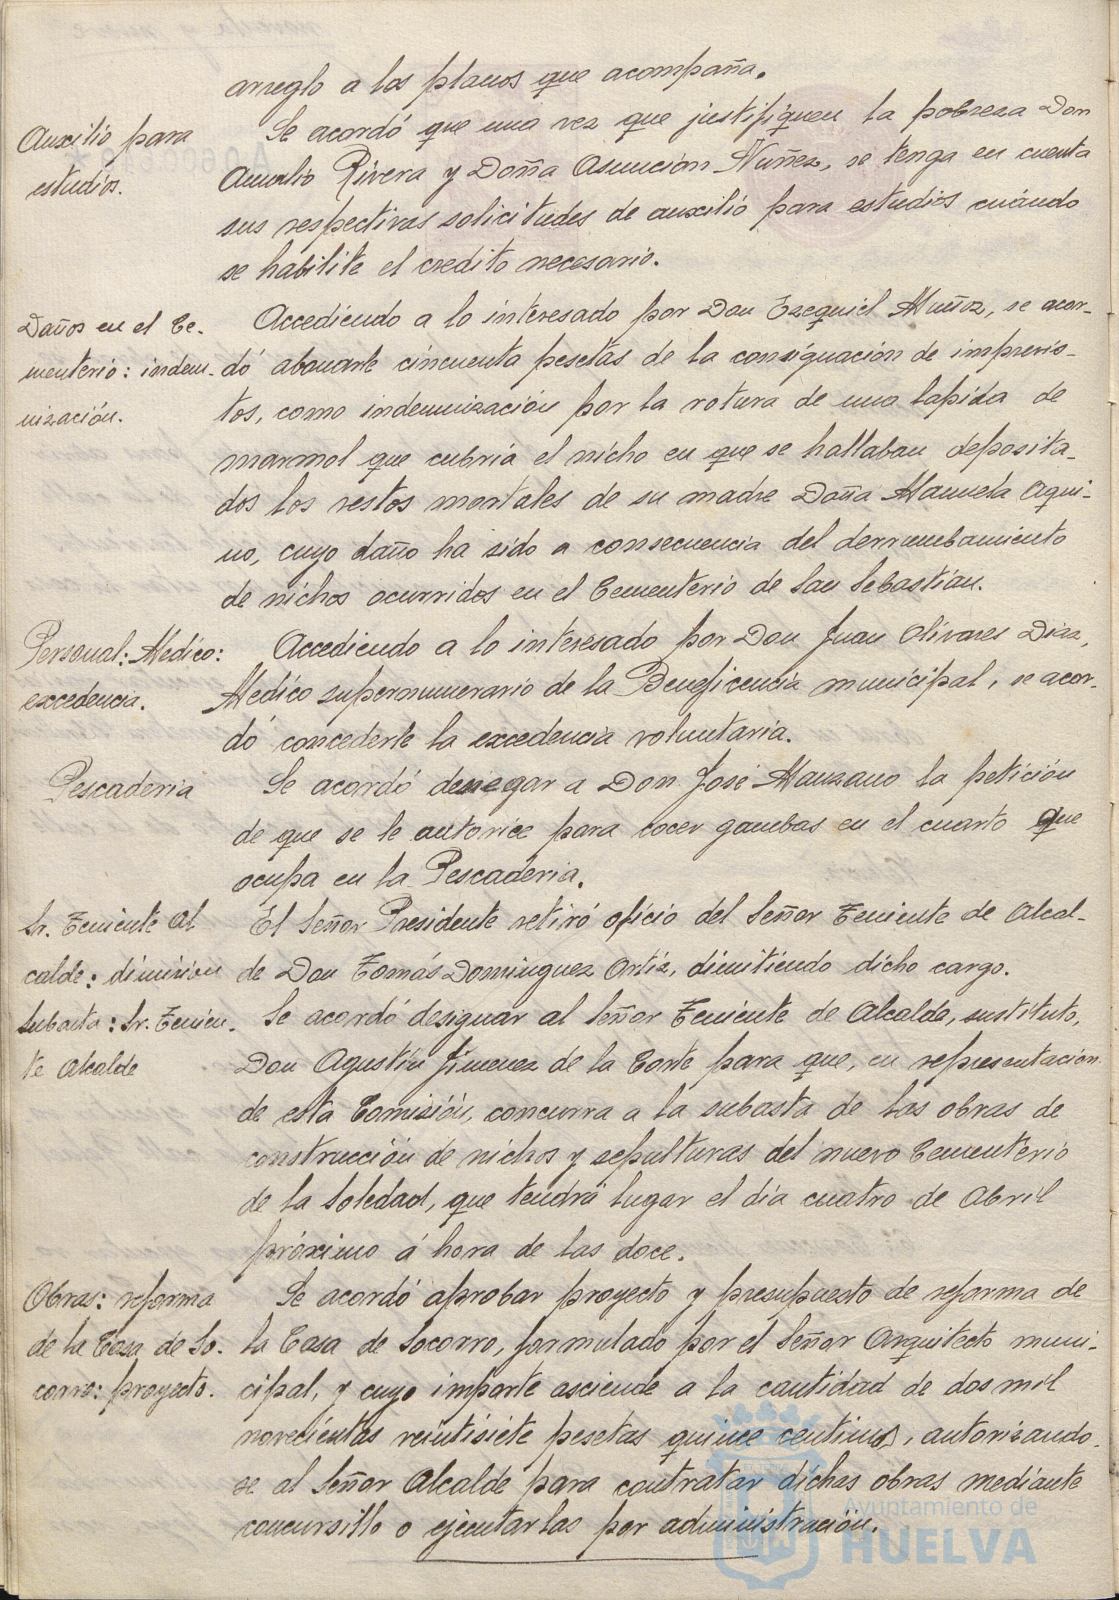 arreglo a los planos que acompaña.
Auxilio para
estudios.
Se acordó que una vez que justifiquen la pobreza Don
Aurelio Rivera y Doña Asunción Nuñez, se tenga en cuenta
sus respectivas solicitudes de auxilio para estudios cuándo
se habilite el credito necesario.
Daños en el Ce-
menterio: indem-
nización.
Accediendo a lo interesado por Don Ezequiel Muñoz, se acor-
dó abonarle cincuenta pesetas de la consignación de imprevis-
tos, como indemnización por la rotura de una lapida de
marmol que cubría el nicho en que se hallaban deposita-
dos los restos mortales de su madre Doña Manuela Aqui-
no, cuyo daño ha sido a consecuencia del derrumbamiento
de nichos ocurridos en el Cementerio de San Sebastián.
Personal: Medico:
excedencia.
Accediendo a lo interesado por Don Juan Olivares Diaz,
Medico supernumerario de la Beneficencia municipal, se acor-
dó concederle la excedencia voluntaria.
Pescaderia
Se acordó denegar a Don José Manzano la petición
de que se le autorice para cocer gambas en el cuarto que
ocupa en la Pescaderia.
Sr. Teniente Al
calde: dimision
El Señor Presidente retiró oficio del Señor Teniente de Alcal-
de Don Tomás Dominguez Ortiz, dimitiendo dicho cargo.
Subasta: Sr. Tenien-
te Alcalde
Se acordó designar al Señor Teniente de Alcalde, sustituto,
Don Agustín Jimenez de la Corte para que, en representación
de esta Comisión, concurra a la subasta de las obras de
construcción de nichos y sepulturas del nuevo Cementerio
de la Soledad, que tendrá lugar el día cuatro de Abril
próximo á hora de las doce.
Obras: reforma
de la Casa de So-
corro: proyecto.
Se acordó aprobar proyecto y presupuesto de reforma de
la Casa de Socorro, formulado por el Señor Arquitecto muni-
cipal, y cuyo importe asciende a la cantidad de dos mil
novecientas veintisiete pesetas quince centimos, autorizando-
se al Señor Alcalde para contratar dichas obras mediante
concursillo o ejecutarlas por administración.
Ayuntamiento de
HUELVA